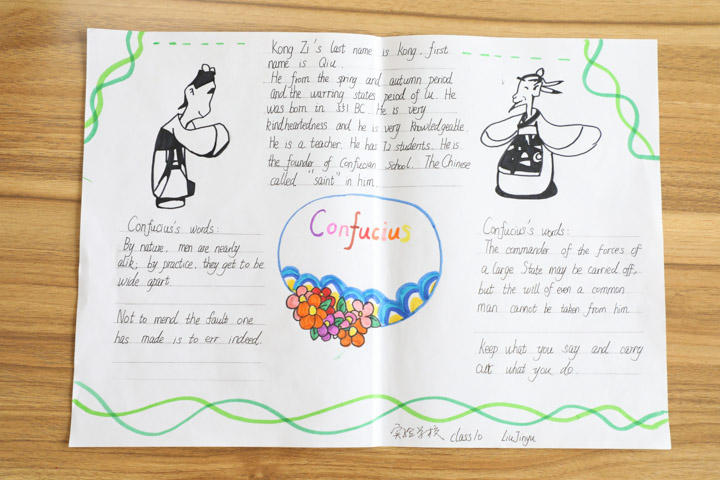 Kong Zi's last name is Kong, first
name is Qiu.
He from the spring and autumn period
and the warring states peiod of Lu. He
was born in 551 BC. He is very
kindheartedness and he is very knowledgeable.
He is a teacher. He has 72 students. He is
the founder of Confucian school. The Chinese
called "saint" in him.
Confucius
Confucius's words:
By nature, men are nearly
alik; by practice, they get to be
wide apart.
Not to mend the fault one
has made is to err indeed.
Confucius's words:
The commander of the forces of
a large State may be carried off,
but the will of even a common
man cannot be taken from him.
Keep what you say and carry
out what you do.
实验学校 class10 LiuJinyu